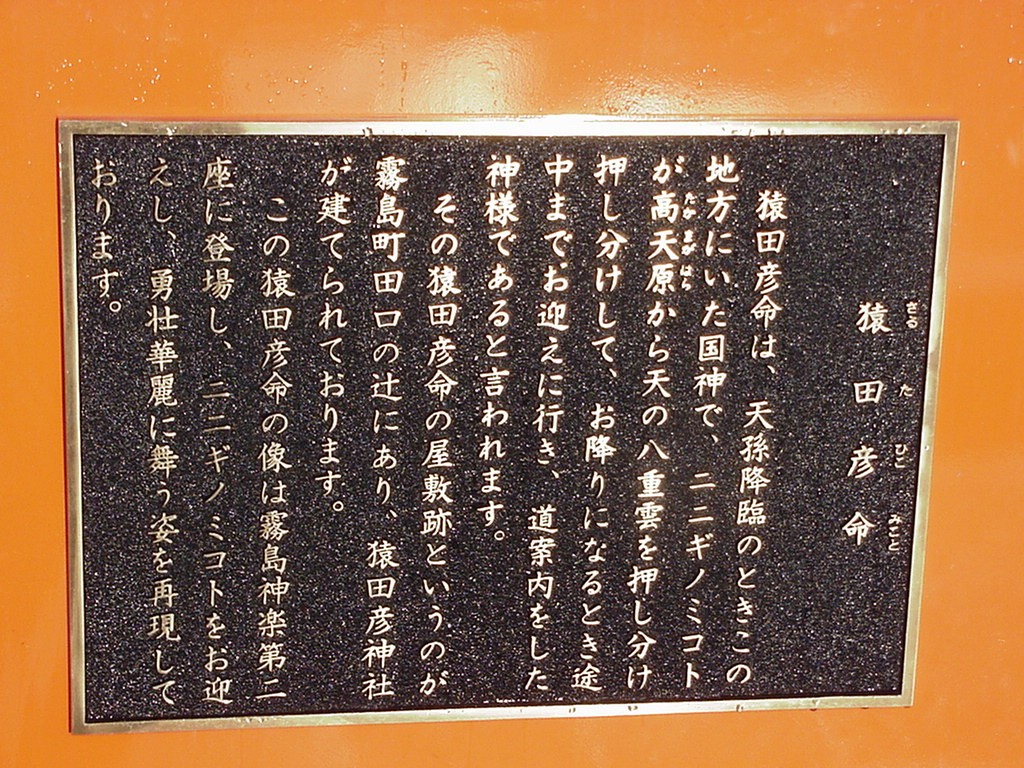 猿田彦命
さる た ひこ みこと
猿田彦命は、天孫降臨のときこの
地方にいた国神で、ニニギノミコト
が高天原から天の八重雲を押し分け
たか まが はら
押し分けして、お降りになるとき途
中までお迎えに行き、道案内をした
神様であると言われます。
その猿田彦命の屋敷跡というのが
霧島町田口の辻にあり、猿田彦神社
が建てられております。
この猿田彦命の像は霧島神楽第二
座に登場し、ニニギノミコトをお迎
えし、勇壮華麗に舞う姿を再現して
おります。